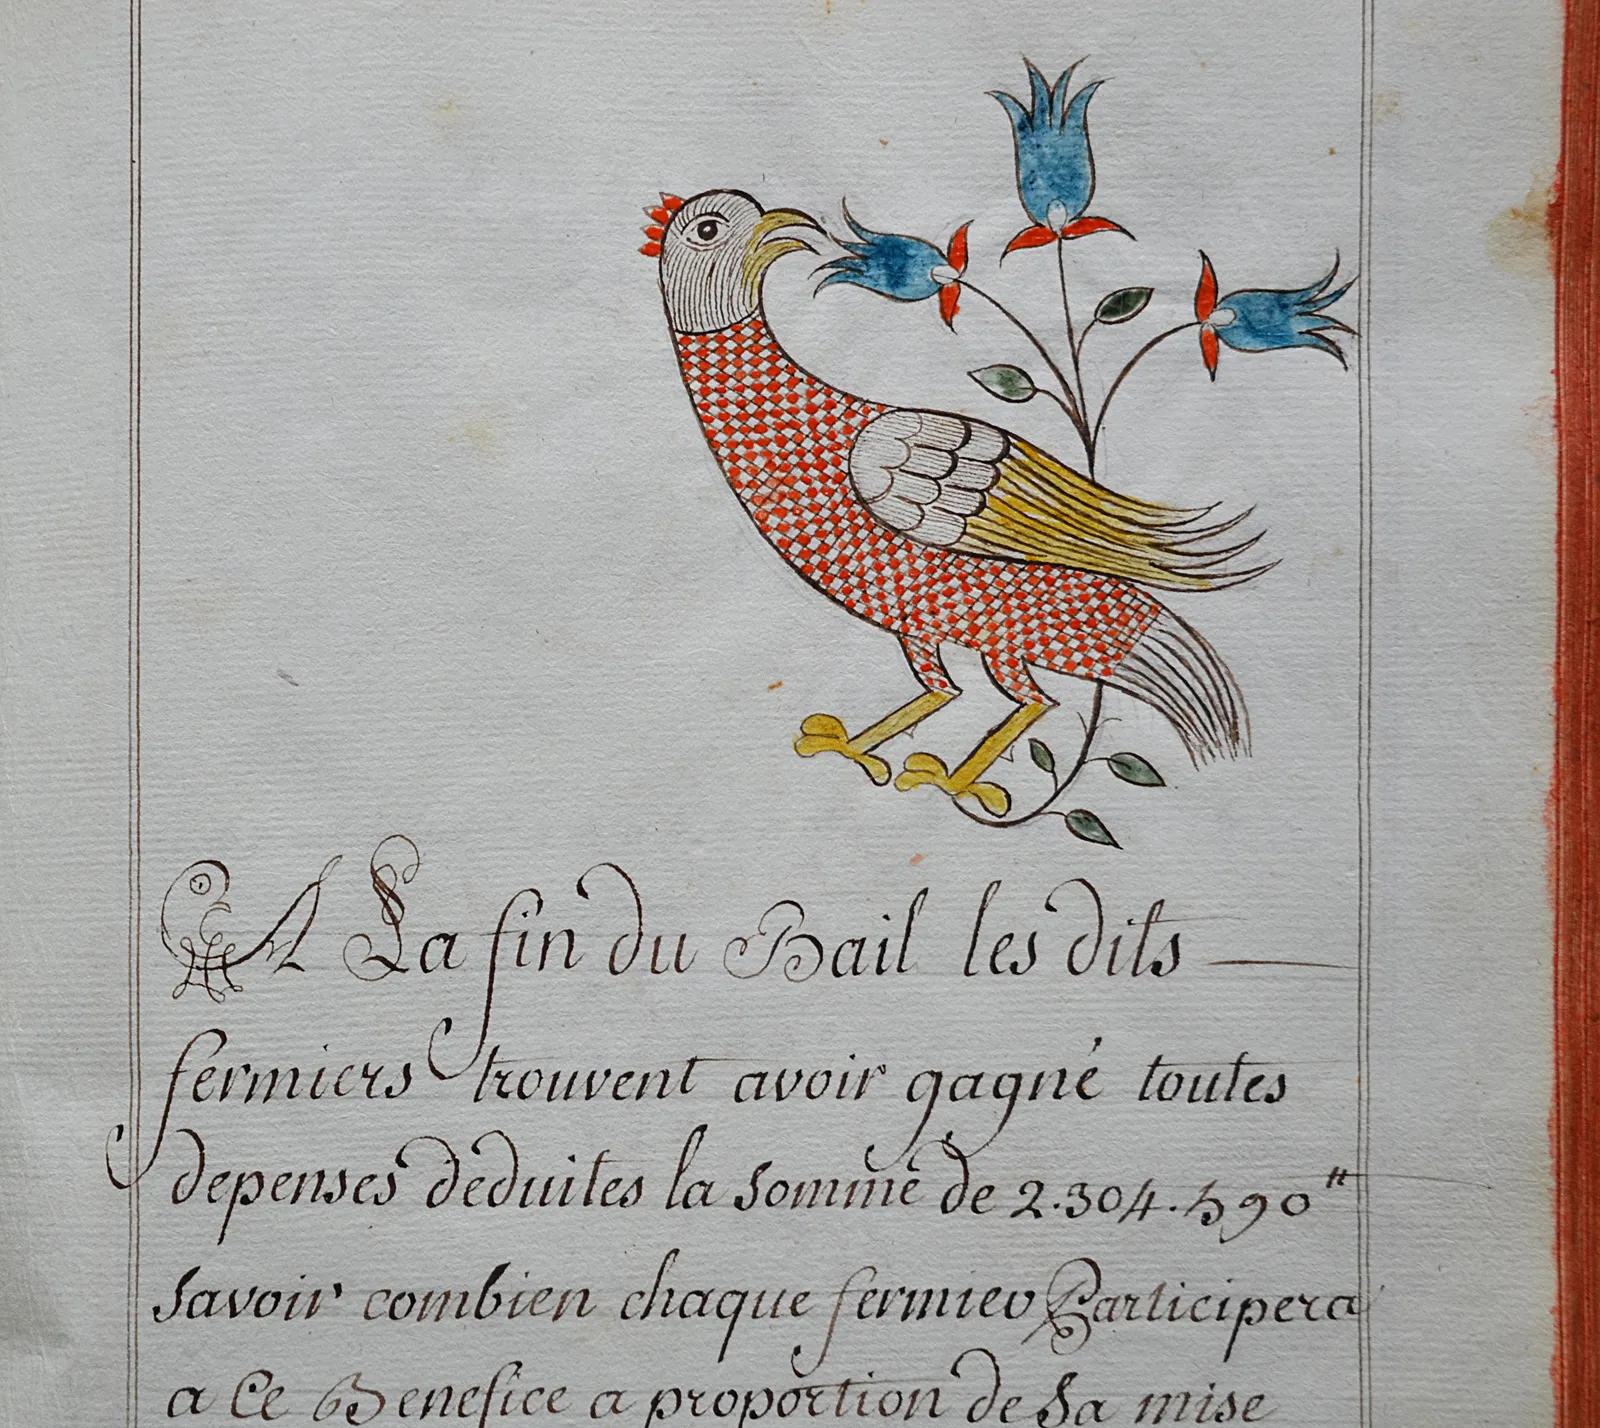 A La fin du Bail les dits
fermiers trouvent avoir gagné toutes
depenses déduites la somme de 2.304.590ᵗᵗ
savoir combien chaque fermier Participera
a Ce Benefice a proportion de Sa mise